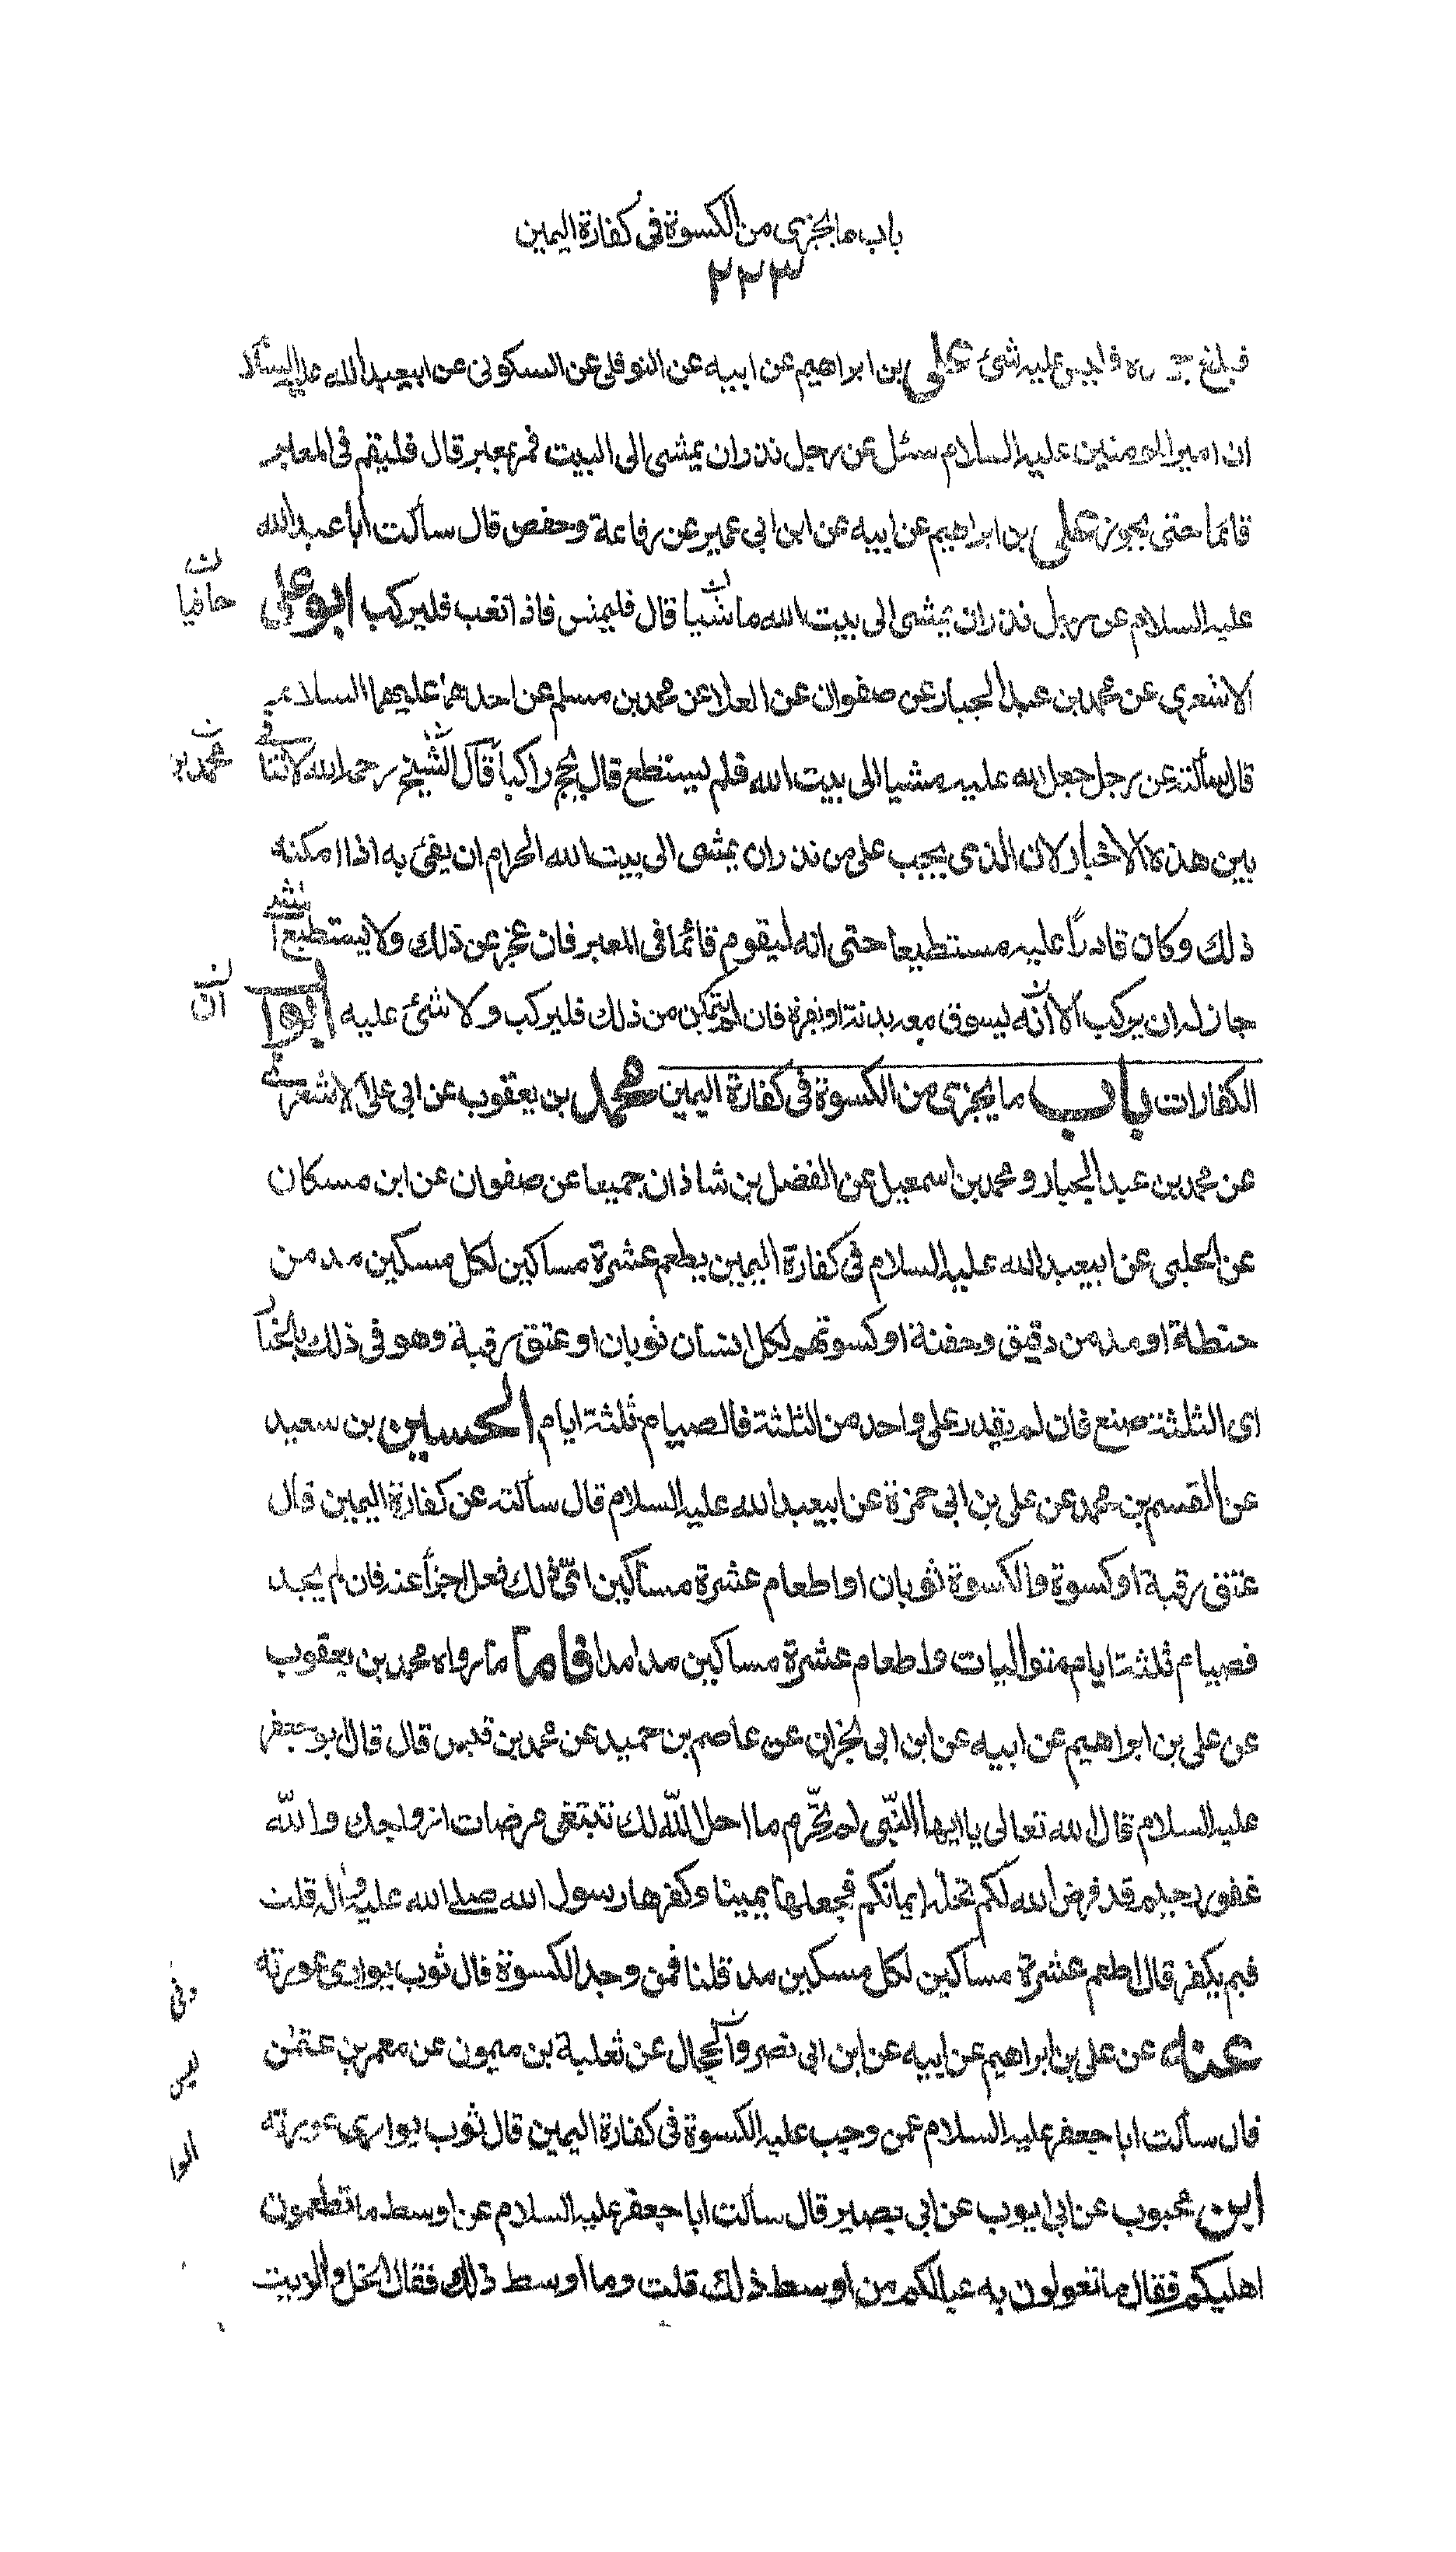 باب ما يجزى من الكسوة فى كفارة اليمين
٢٢٣
فبلغ فليس عليه شئ على بن ابراهيم عن ابيه عن النوفلى عن السكونى عن ابيعبد الله عليه السلا
ان امير المومنين عليه السلام سئل عن رجل نذر ان يمشى الى البيت فمر بمعبر قال فليقم فى المعابر
قائما حتى يجوز على بن ابراهيم عن ابيه عن ابن ابى عمير عن رفاعة وحفص قال سألت أبا عبد الله
عليه السلام عن رجل نذر ان يمشى الى بيت الله ماشيا قال فليمش فاذا تعب فليركب ابو على
حافيا
الاشعرى عن محمد بن عبد الجبار عن صفوان عن العلا عن محمد بن مسلم عن احدهما عليهما السلام
قال سألته عن رجل جعل لله عليه مشيا الى بيت الله فلم يستطع قال يحج راكبا قال الشيخ رحمه الله لا تنافى
محمد بن
بين هذه الاخبار لان الذى يجب على من نذر ان يمشى الى بيت الله الحرام ان يفئ به اذا امكنه
ذلك وكان قادراً عليه مستطيعا حتى انه ليقوم قائما فى المعبر فان عجز عن ذلك ولا يستطيع
جاز له ان يركب الا أنه يسوق معه بدنة او بقرة فان لم يتمكن من ذلك فليركب ولا شئ عليه ابوا
ان
الكفارات باب ما يجزى من الكسوة فى كفارة اليمين محمد بن يعقوب عن ابى على الاشعرى
عن محمد بن عبد الجبار و محمد بن اسمعيل عن الفضل بن شاذان جميعا عن صفوان عن ابن مسكان
عن الحلبى عن ابيعبد الله عليه السلام فى كفارة اليمين يطعم عشرة مساكين لكل مسكين مد من
حنطة او مد من دقيق وحفنة او كسوتهم لكل انسان ثوبان او عتق رقبة وهو فى ذلك بالخيا
اى الثلثة صنع فان لم يقدر على واحد من الثلثة فالصيام ثلثة ايام الحسين بن سعيد
عن القسم بن محمد عن على بن ابى حمزة عن ابيعبد الله عليه السلام قال سألته عن كفارة اليمين قال
عتق رقبة او كسوة والكسوة ثوبان او اطعام عشرة مساكين اى ذلك فعل اجزأ عنه فان لم يجد
فصيام ثلثة ايام متواليات واطعام عشرة مساكين مدا مدا فاما ما رواه محمد بن يعقوب
عن على بن ابراهيم عن ابيه عن ابن ابى نجران عن عاصم بن حميد عن محمد بن قيس قال قال ابو جعفر
عليه السلام قال الله تعالى يا ايها النبى لم تحرم ما احل الله لك تبتغى مرضات ازواجك والله
غفور رحيم قد فرض الله لكم تحلة ايمانكم فجعلها يمينا وكفرها رسول الله صلى الله عليه وآله قلت
فبم يكفر قال اطعم عشرة مساكين لكل مسكين مد قلنا فمن وجد الكسوة قال ثوب يوارى عورته
عنه عن على بن ابراهيم عن ابيه عن ابن ابى نصر والحجال عن ثعلبة بن ميمون عن معمر بن عثمن
قال سألت ابا جعفر عليه السلام عمن وجب عليه الكسوة فى كفارة اليمين قال ثوب يوارى عورته
ابن محبوب عن ابى ايوب عن ابى بصير قال سألت ابا جعفر عليه السلام عن اوسط ما تطعمون
اهليكم فقال ما تعولون به عيالكم من أوسط ذلك قلت وما أوسط ذلك فقال الخل والزيت